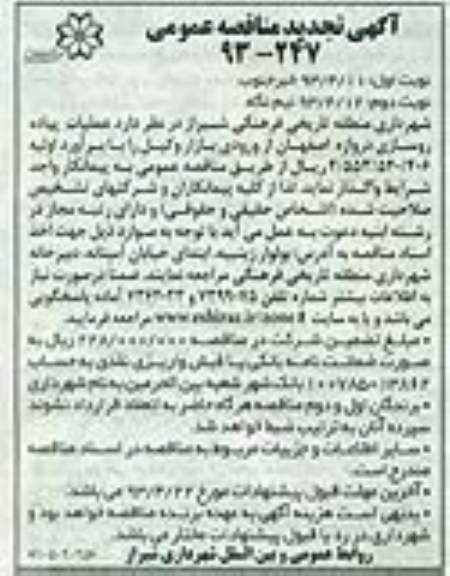 آگهی تجدید مناقصه عمومی
۹۳-۲۴۷
نوبت اول: ۹۳/۴/۱۱ خبرجنوب
نوبت دوم: ۹۳/۴/۱۲ نیم نگاه
شهرداری منطقه تاریخی فرهنگی شیراز در نظر دارد عملیات پیاده
روسازی دروازه اصفهان از ورودی بازار وکیل را با برآورد اولیه
ریال از طریق مناقصه عمومی به پیمانکار واجد
شرایط واگذار نماید لذا از کلیه پیمانکاران و شرکتهای تشخیص
صلاحیت شده (اشخاص حقیقی و حقوقی) و دارای رتبه مجاز در
رشته ابنیه دعوت به عمل می آید با توجه به موارد ذیل جهت اخذ
اسناد مناقصه به آدرس: بولوار زینبیه، ابتدای خیابان آستانه، دبیرخانه
شهرداری منطقه تاریخی فرهنگی مراجعه نمایند. ضمنا درصورت نیاز
به اطلاعات بیشتر شماره تلفن آماده پاسخگویی
می باشد و یا به سایت مراجعه فرمایید.
• مبلغ تضمین شرکت در مناقصه ۲۲۸/۰۰۰/۰۰۰ ریال به
صورت ضمانت نامه بانکی یا فیش واریزی نقدی به حساب
بانک شهر شعبه بین الحرمین به نام شهرداری
• برندگان اول و دوم مناقصه هرگاه حاضر به انعقاد قرارداد نشوند
سپرده آنان به ترتیب ضبط خواهد شد.
• سایر اطلاعات و جزییات مربوط به مناقصه در اسناد مناقصه
مندرج است.
• آخرین مهلت قبول پیشنهادات مورخ ۹۳/۴/۲۲ می باشد.
• بدیهی است هزینه آگهی به عهده برنده مناقصه خواهد بود و
شهرداری در رد یا قبول پیشنهادات مختار می باشد.
روابط عمومی و بین الملل شهرداری شیراز